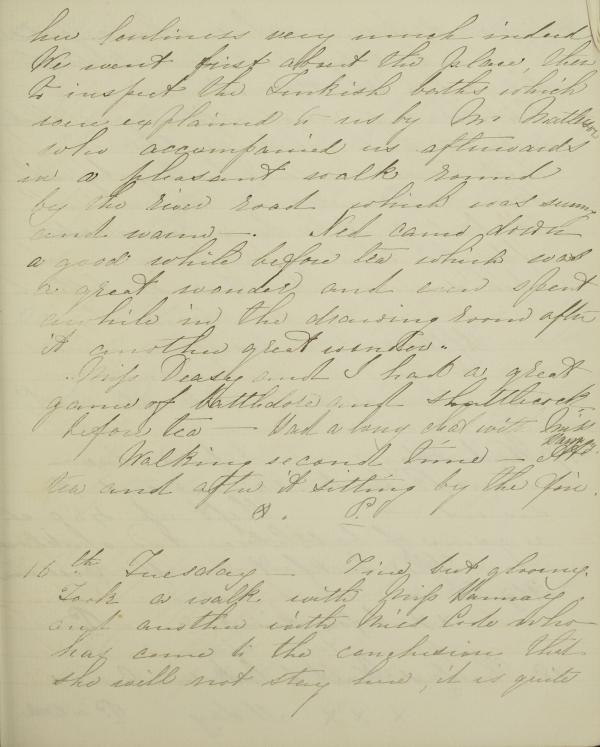 her loneliness very much indeed
We went first about the place, then
to inspect the Turkish baths which
were explained to us by Mr
who accompanied us afterwards
in a pleasant walk round
by the river road which was sunny
and warm —. Ned came down
a good while before tea which was
a great wonder and even spent
awhile in the drawing room after
it another great wonder.
Miss Deasy and I had a great
game of Battledore and Shuttlecock
before tea — Had a long chat with Miss
Walking second time —
tea and after it sitting by the fire.
P.
16th Tuesday — Fine but gloomy.
Took a walk with Miss Hannay
and another with Miss Code who
has come to the conclusion that
she will not stay here, it is quite